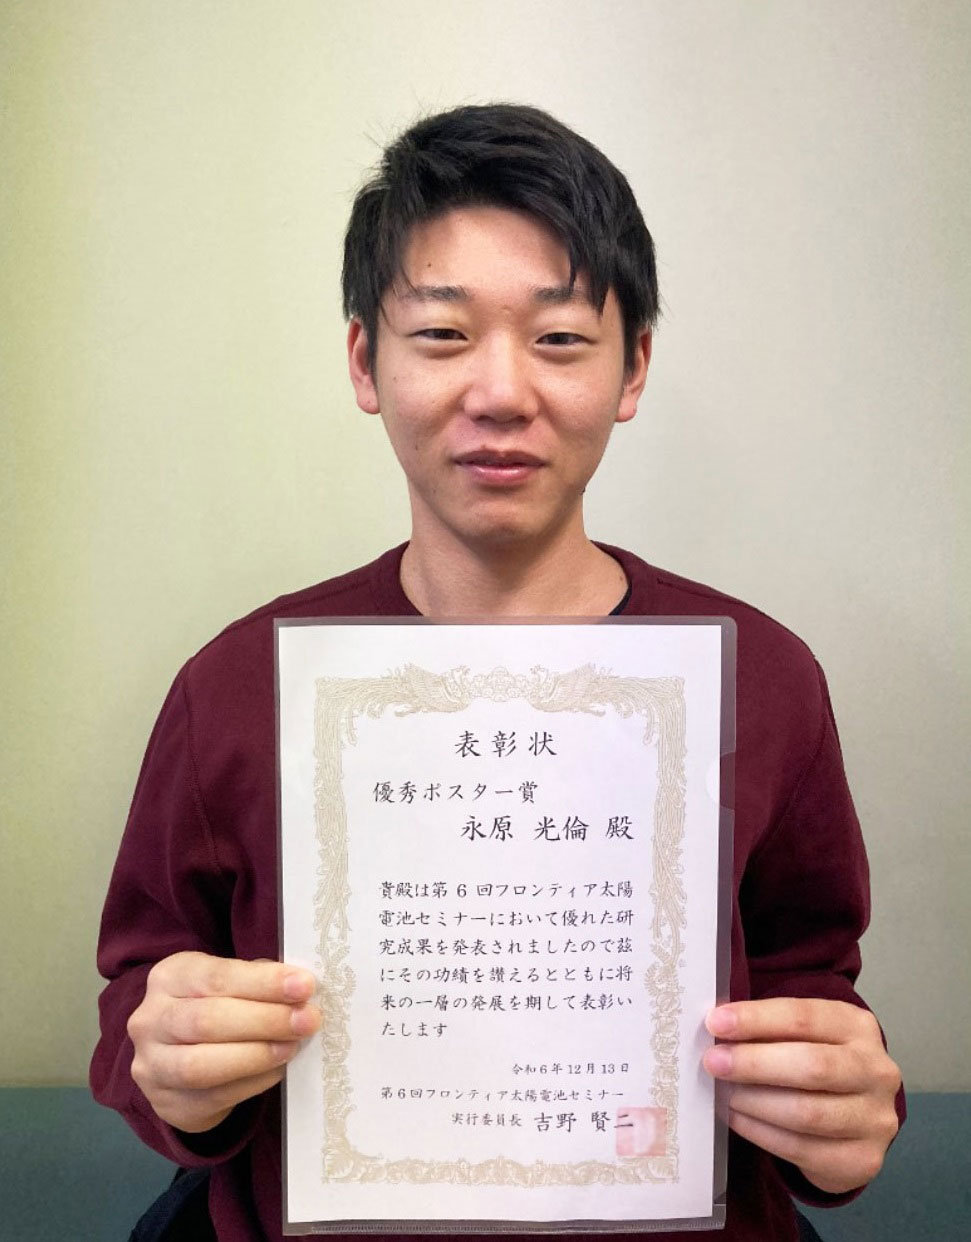 表彰状
優秀ポスター賞
永原 光倫 殿
貴殿は第 6 回フロンティア太陽
電池セミナーにおいて優れた研
究成果を発表されましたので茲
にその功績を讃えるとともに将
来の一層の発展を期して表彰い
たします
令和6年12月13日
第6回フロンティア太陽電池セミナー
実行委員長 吉野 賢二